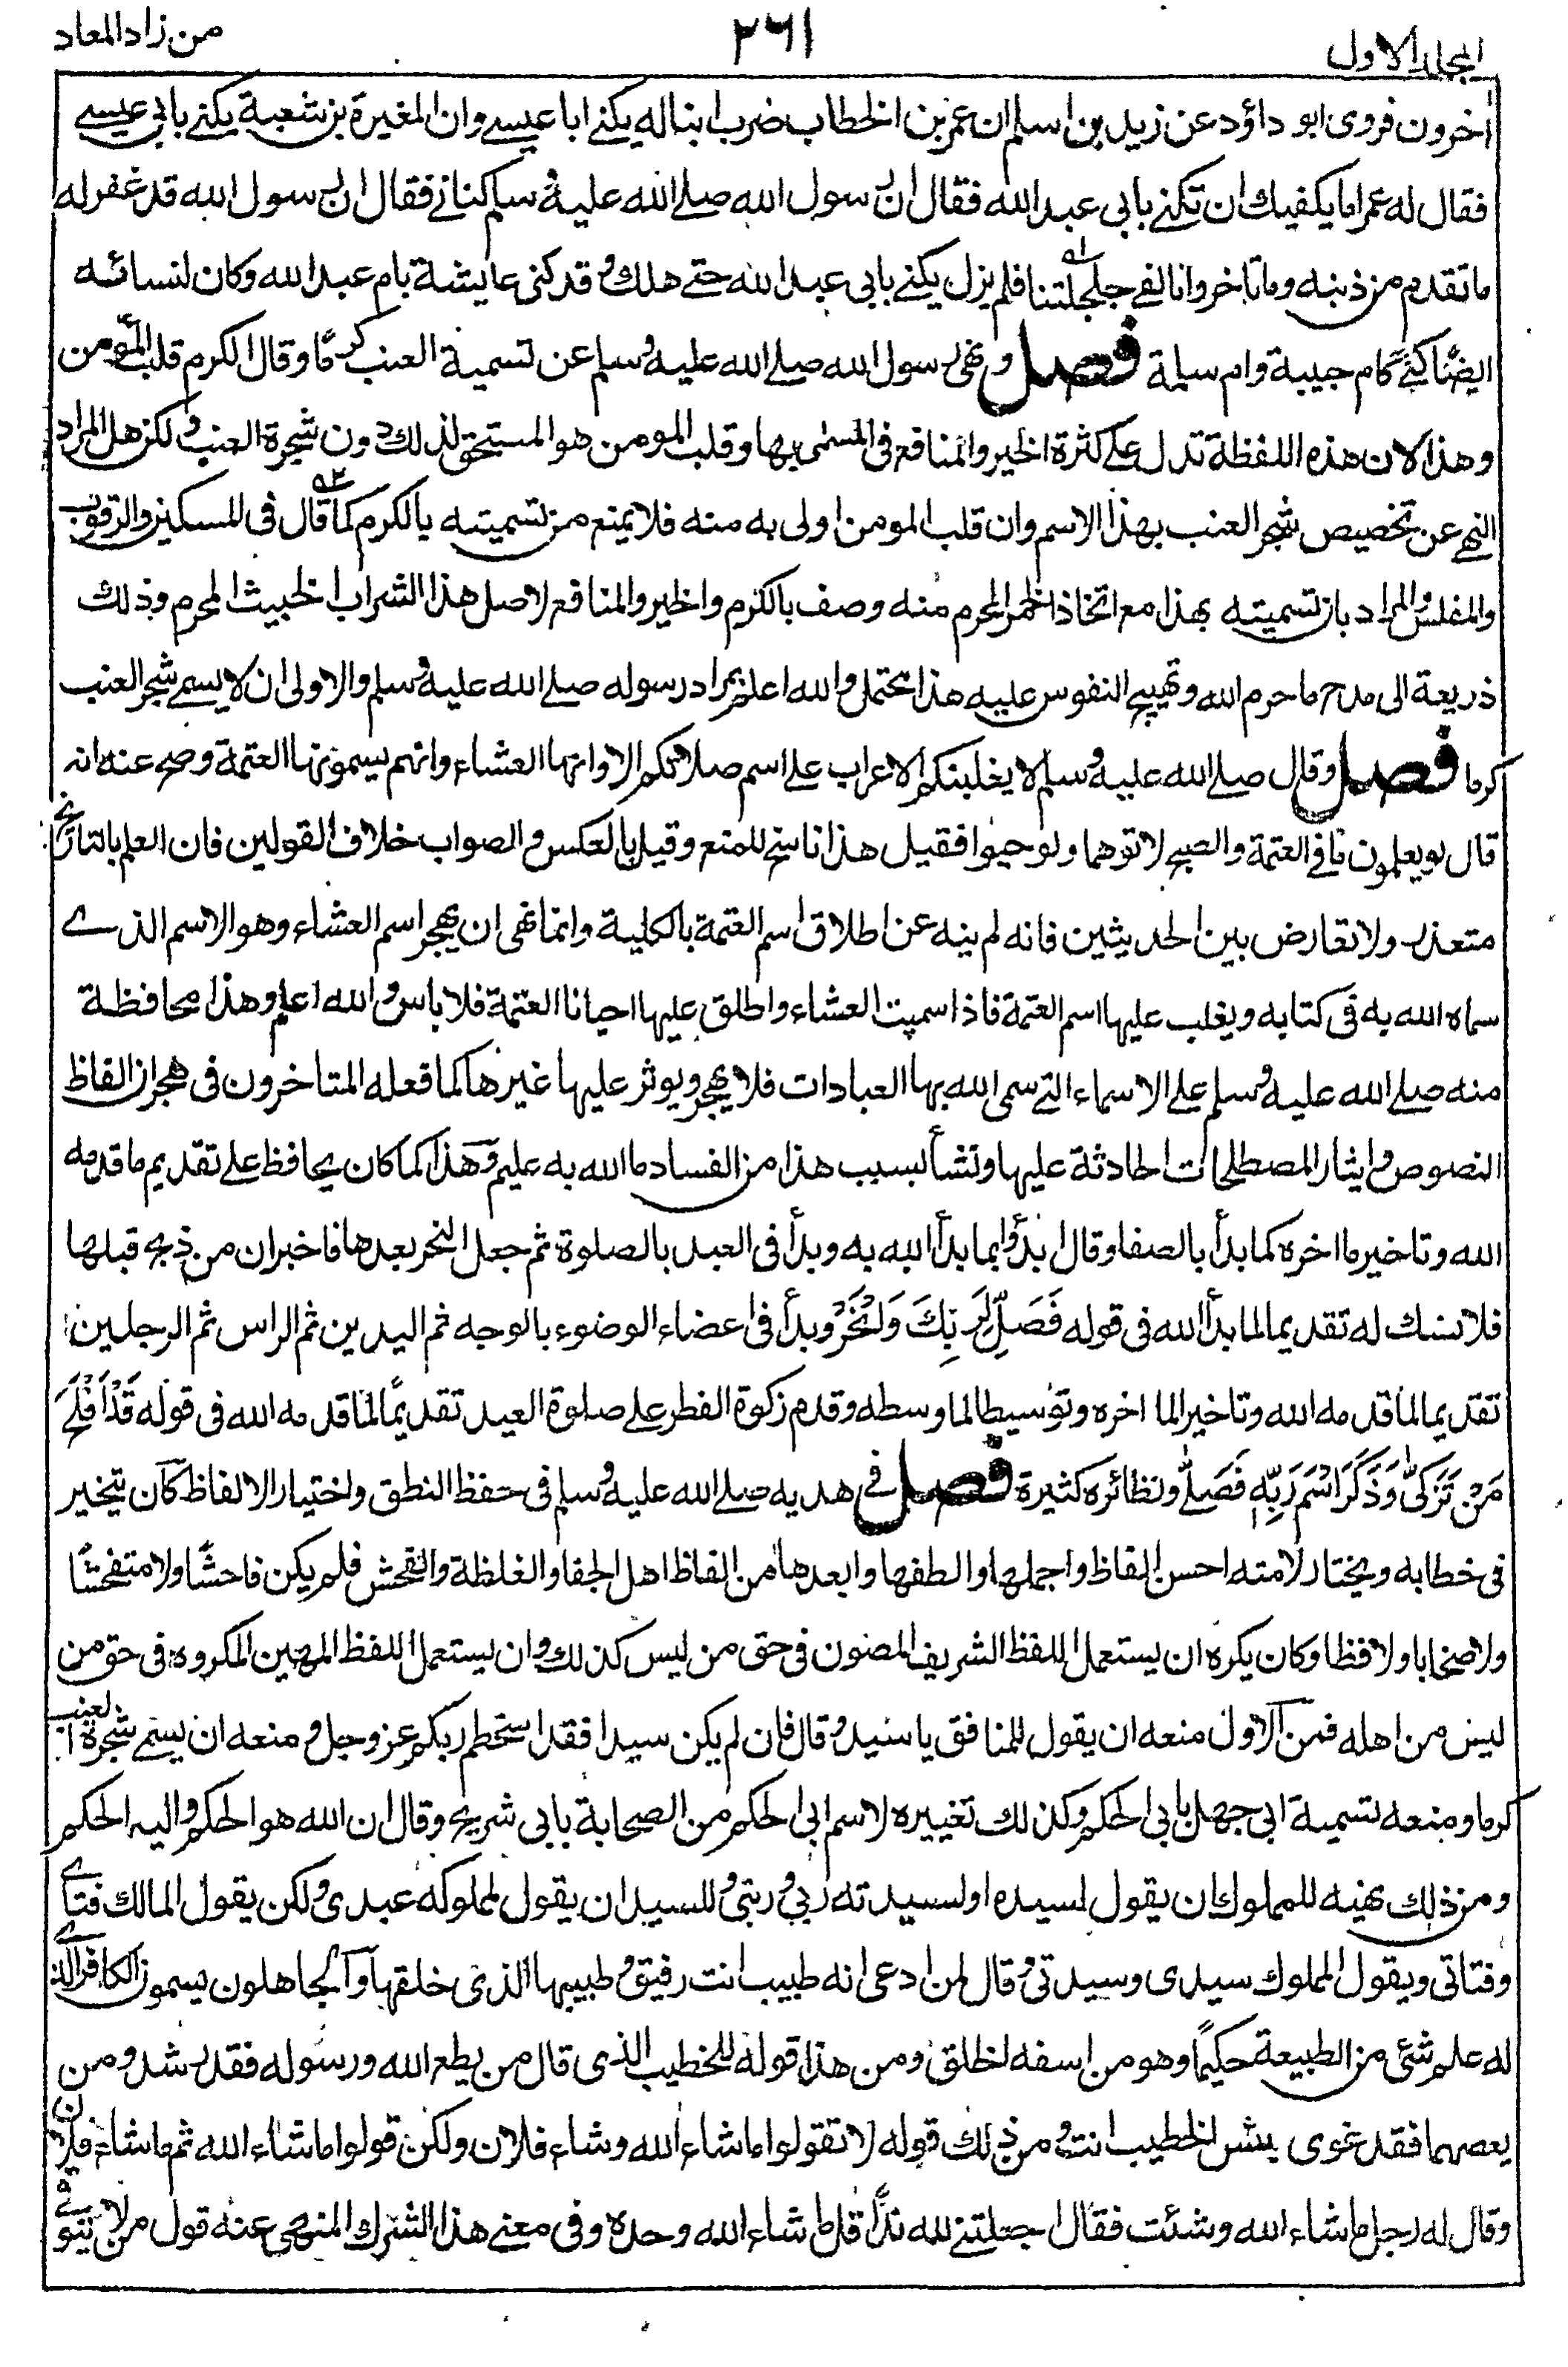 المجلد الاول
٢٦١
من زاد المعاد
اخرون فروى ابو داؤد عن زيد بن اسلم ان عمر بن الخطاب ضرب ابنا له يكنى ابا عيسى وان المغيرة بن شعبة يكنى بابي عيسى
فقال له عمر اما يكفيك ان تكنى بابى عبد الله فقال ان رسول الله صلى الله عليه وسلم كنانى فقال ان رسول الله قد غفر له
ما تقدم من ذنبه وما تاخر وانا لفى جلجلتنا فلم يزل يكنى بابى عبد الله حتى هلك وقد كنى عايشة بام عبد الله وكان لنسائه
ايضًا كنى كام حبيبة وام سلمة فصل ونهى رسول الله صلى الله عليه وسلم عن تسمية العنب كرمًا وقال الكرم قلب المؤمن
وهذا لان هذه اللفظة تدل على كثرة الخير والمنافع فى المسمى بها وقلب المومن هو المستحق لذلك دون شجرة العنب ولكن هل المراد
النهى عن تخصيص شجر العنب بهذا الاسم وان قلب المومن اولى به منه فلا يمنع من تسميته بالكرم كما قال فى المسكين والرقوب
والمفلس والمراد بان تسميته بهذا مع اتخاذ الخمر المحرم منه وصف بالكرم والخير والمنافع لاصل هذا الشراب الخبيث المحرم وذلك
ذريعة الى مدح ما حرم الله وتهييج النفوس عليه هذا محتمل والله اعلم بمراد رسوله صلى الله عليه وسلم والاولى ان لا يسمى شجر العنب
كرما فصل وقال صلى الله عليه وسلم لا يغلبنكم الاعراب على اسم صلاتكم الا وانها العشاء وانهم يسمونها العتمة وصح عنه انه
قال لو يعلمون ما فى العتمة والصبح لاتوهما ولو حبوا فقيل هذا ناسخ للمنع وقيل بالعكس والصواب خلاف القولين فان العلم بالتاريخ
متعذر ولا تعارض بين الحديثين فانه لم ينه عن اطلاق اسم العتمة بالكلية وانما نهى ان يهجر اسم العشاء وهو الاسم الذے
سماه الله به فى كتابه ويغلب عليها اسم العتمة فاذا سميت العشاء واطلق عليها احيانا العتمة فلا باس والله اعلم وهذا محافظة
منه صلى الله عليه وسلم على الاسماء التى سمى الله بها العبادات فلا يهجر ويوثر عليها غيرها كما فعله المتاخرون فى هجران الفاظ
النصوص وايثار المصطلحات الحادثة عليها ونشأ بسبب هذا من الفساد ما الله به عليم وهذا كما كان يحافظ على تقديم ما قدمه
الله وتاخير ما اخره كما بدأ بالصفا وقال ابدؤا بما بدأ الله به وبدأ فى العيد بالصلوة ثم جعل النحر بعدها فاخبر ان من ذبح قبلها
فلا نسك له تقديما لما بدأ الله فى قوله فَصَلِّ لِرَبِّكَ وَانْحَرْ وبدأ فى اعضاء الوضوء بالوجه ثم اليدين ثم الراس ثم الرجلين
تقديما لما قدمه الله وتاخيرا لما اخره وتوسيطا لما وسطه وقدم زكوة الفطر على صلوة العيد تقديمًا لما قدمه الله فى قوله قَدْ اَفْلَحَ
مَنْ تَزَكّٰى وَذَكَرَ اسْمَ رَبِّهٖ فَصَلّٰى ونظائره كثيرة فصل فى هديه صلى الله عليه وسلم فى حفظ النطق واختيار الالفاظ كان يتخير
فى خطابه ويختار لامته احسن الفاظ واجملها والطفها وابعدها من الفاظ اهل الجفا والغلظة والفحش فلم يكن فاحشًا ولا متفحشًا
ولا صخابا ولا فظا وكان يكره ان يستعمل اللفظ الشريف المصون فى حق من ليس كذلك وان يستعمل اللفظ المهين المكروه فى حق من
ليس من اهله فمن الاول منعه ان يقول للمنافق يا سيد وقال فان لم يكن سيدا فقد اسخطتم ربكم عز وجل ومنعه ان يسمى شجرة العنب
كرما ومنعه تسمية ابى جهل بابى الحكم وكذلك تغييره لاسم ابى الحكم من الصحابة بابى شريح وقال ان الله هو الحكم واليه الحكم
ومن ذلك نهيه للمملوك ان يقول لسيده او لسيدته ربى وربتى وللسيد ان يقول لمملوكه عبدى ولكن يقول المالك فتاے
وفتاتى ويقول المملوك سيدى وسيدتى وقال لمن ادعى انه طبيب انت رفيق وطبيبها الذى خلقها والجاهلون يسمون الكافر الذے
له علم شئ من الطبيعة حكيمًا وهو من اسفه الخلق ومن هذا قوله للخطيب الذى قال من يطع الله ورسوله فقد رشد ومن
يعصهما فقد غوى بئس الخطيب انت ومن ذلك قوله لا تقولوا ماشاء الله وشاء فلان ولكن قولوا ماشاء الله ثم ماشاء فلان
وقال له رجل ماشاء الله وشئت فقال اجعلتنى لله ندًّا قل ماشاء الله وحده وفى معنى هذا الشرك المنهى عنه قول من لا يتوقى